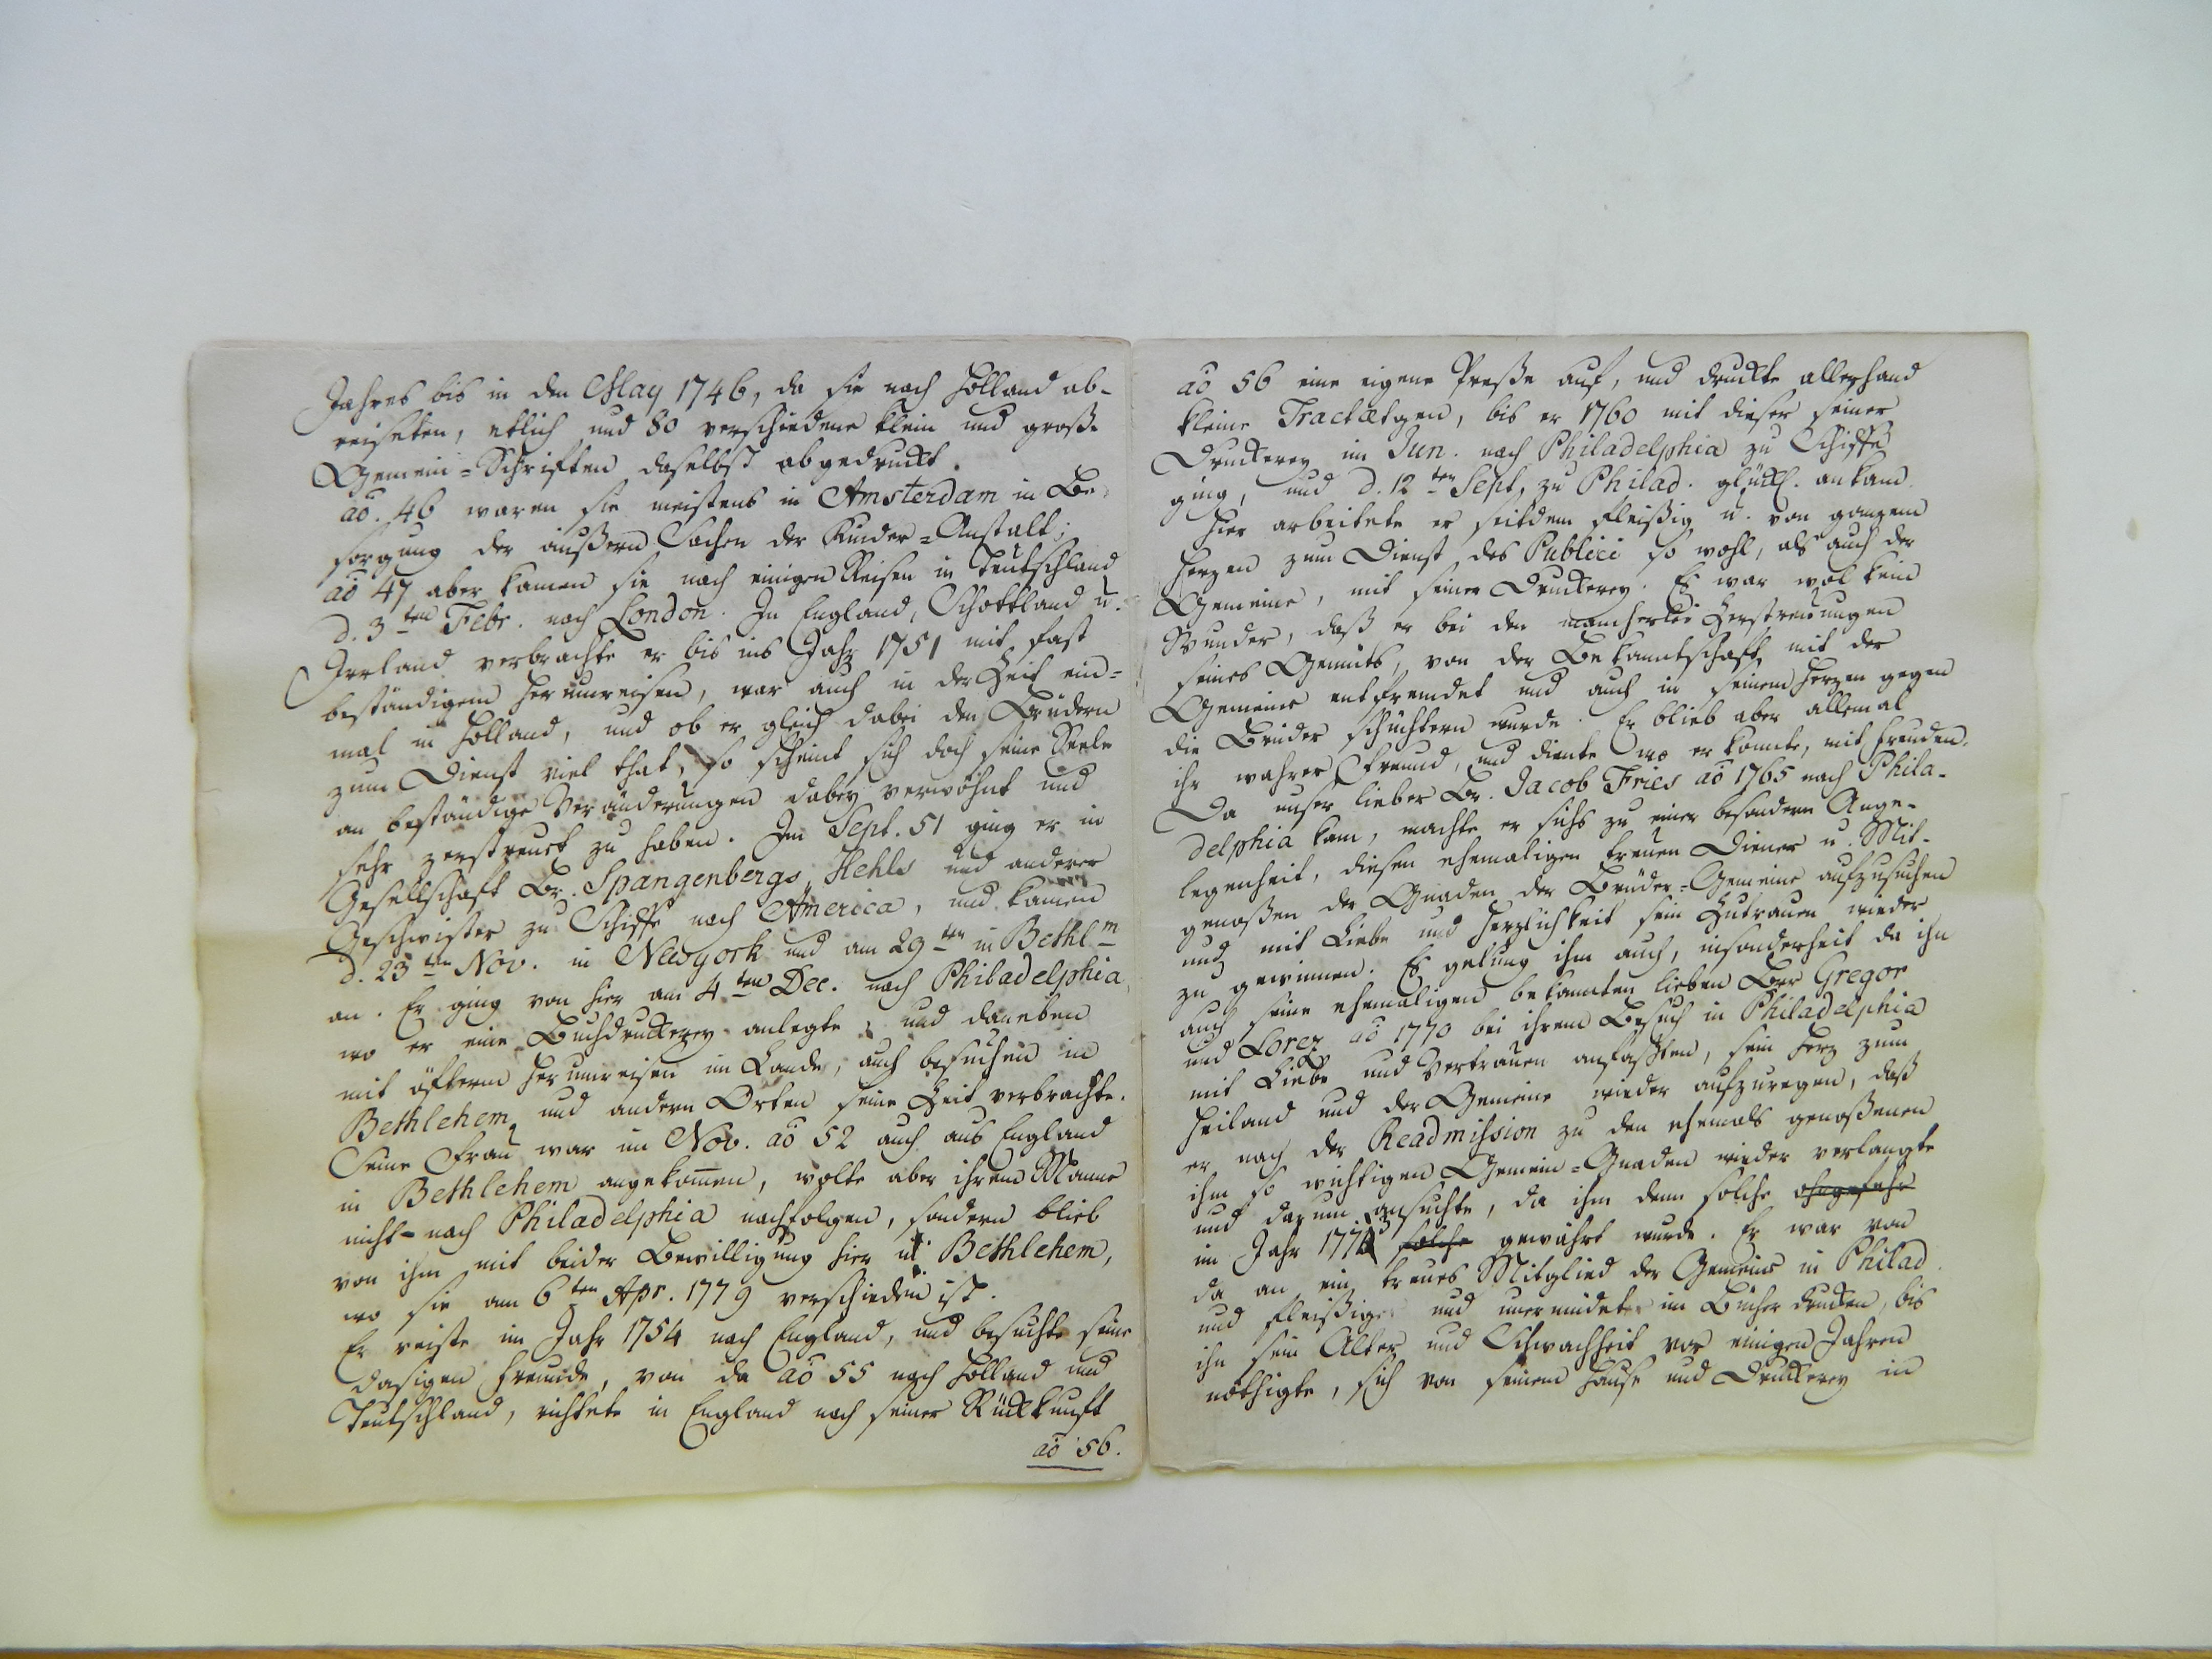 Jahres bis in den May 1746, da sie nach Holland ab-
reiseten, etlich und 80 verschiedene klein und große
Gemein=Schriften daselbst abgedruckt.
ao. 46 waren sie meistens in Amsterdam in Be-
sorgung der äußern Sachen der Kinder=Anstalt;
ao 47 aber kamen sie nach einigen Reisen in Teutschland
d. 3ten Febr. nach London. In England, Schottland u.
Irrland verbrachte er bis ins Jahr 1751 mit fast
beständigem herumreisen, war auch in der Zeit ein=
mal in Holland, und ob er gleich dabei den Brüdern
zum Dienst viel that, so scheint sich doch seine Seele
an beständige Veränderungen dabey verwöhnt und
sehr zerstreuet zu haben. Im Sept. 51 ging er in
Gesellschaft Br. Spangenbergs, Hehls und anderer
Geschwister zu Schiffe nach America, und kamen
d. 23ten Nov. in Newyork und am 29ten in Bethlm
an. Er ging von hier am 4ten Dec. nach Philadelphia,
wo er eine Buchdruckerey anlegte, und daneben
mit öfterm herumreisen im Lande, auch besuchen in
Bethlehem und andern Orten seine Zeit verbrachte.
Seine Frau war im Nov. ao 52 auch aus England
in Bethlehem angekomen, wolte aber ihrem Manne
nicht nach Philadelphia nachfolgen, sondern blieb
von ihm mit beider Bewilligung hier in Bethlehem,
wo sie am 6ten Apr. 1779 verschieden ist.
Er reiste im Jahr 1754 nach England, und besuchte seine
dasigen Freunde, von da ao 55 nach Holland und
Teutschland, richtete in England nach seiner Rückkunft
ao 56.
ao 56 eine eigene Preße auf, und druckte allerhand
kleine Tractætgen, bis er 1760 mit dieser seiner
Druckerey im Jun. nach Philadelphia zu Schiffe
ging, und d. 12ten Sept. zu Philad. glückl. ankam.
Hier arbeitete er seitdem fleißig u. von ganzem
Herzen zum Dienst des Publici so wohl, als auch der
Gemeine, mit seiner Druckerey. Es war wol kein
Wunder, daß er bei den mancherlei Zerstreuungen
seines Gemüts, von der Bekanntschaft mit der
Gemeine entfremdet und auch in seinem Herzen gegen
die Brüder schüchtern wurde. Er blieb aber allemal
ihr wahrer Freund, und diente wo er konnte, mit Freuden.
Da unser lieber Br. Jacob Fries ao 1765 nach Phila-
delphia kam, machte er sichs zu einer besondern Ange-
legenheit, diesen ehemaligen treuen Diener u. Mit-
genoßen der Gnaden der Brüder=Gemeine aufzusuchen
und mit Liebe und Herzlichkeit sein Zutrauen wieder
zu gewinnen. Es gelung ihm auch, insonderheit da ihn
auch seine ehemaligen bekannten lieben Brr Gregor
und Lorez ao 1770 bei ihrem Besuch in Philadelphia
mit Liebe und Vertrauen anfaßten, sein Herz zum
Heiland und der Gemeine wieder aufzuregen, daß
er nach der Readmission zu den ehemals genoßenen
ihm so wichtigen Gemein=Gnaden wieder verlangte
und darum ansuchte, da ihm denn solche ohngefehr
im Jahr 1773 solche gewährt wurde. Er war von
da an ein treues Mitglied der Gemeine in Philad.
und fleißig und unermüdet im Bücher drucken, bis
ihn sein Alter und Schwachheit vor einigen Jahren
nöthigte, sich von seinem Hause und Druckerey in